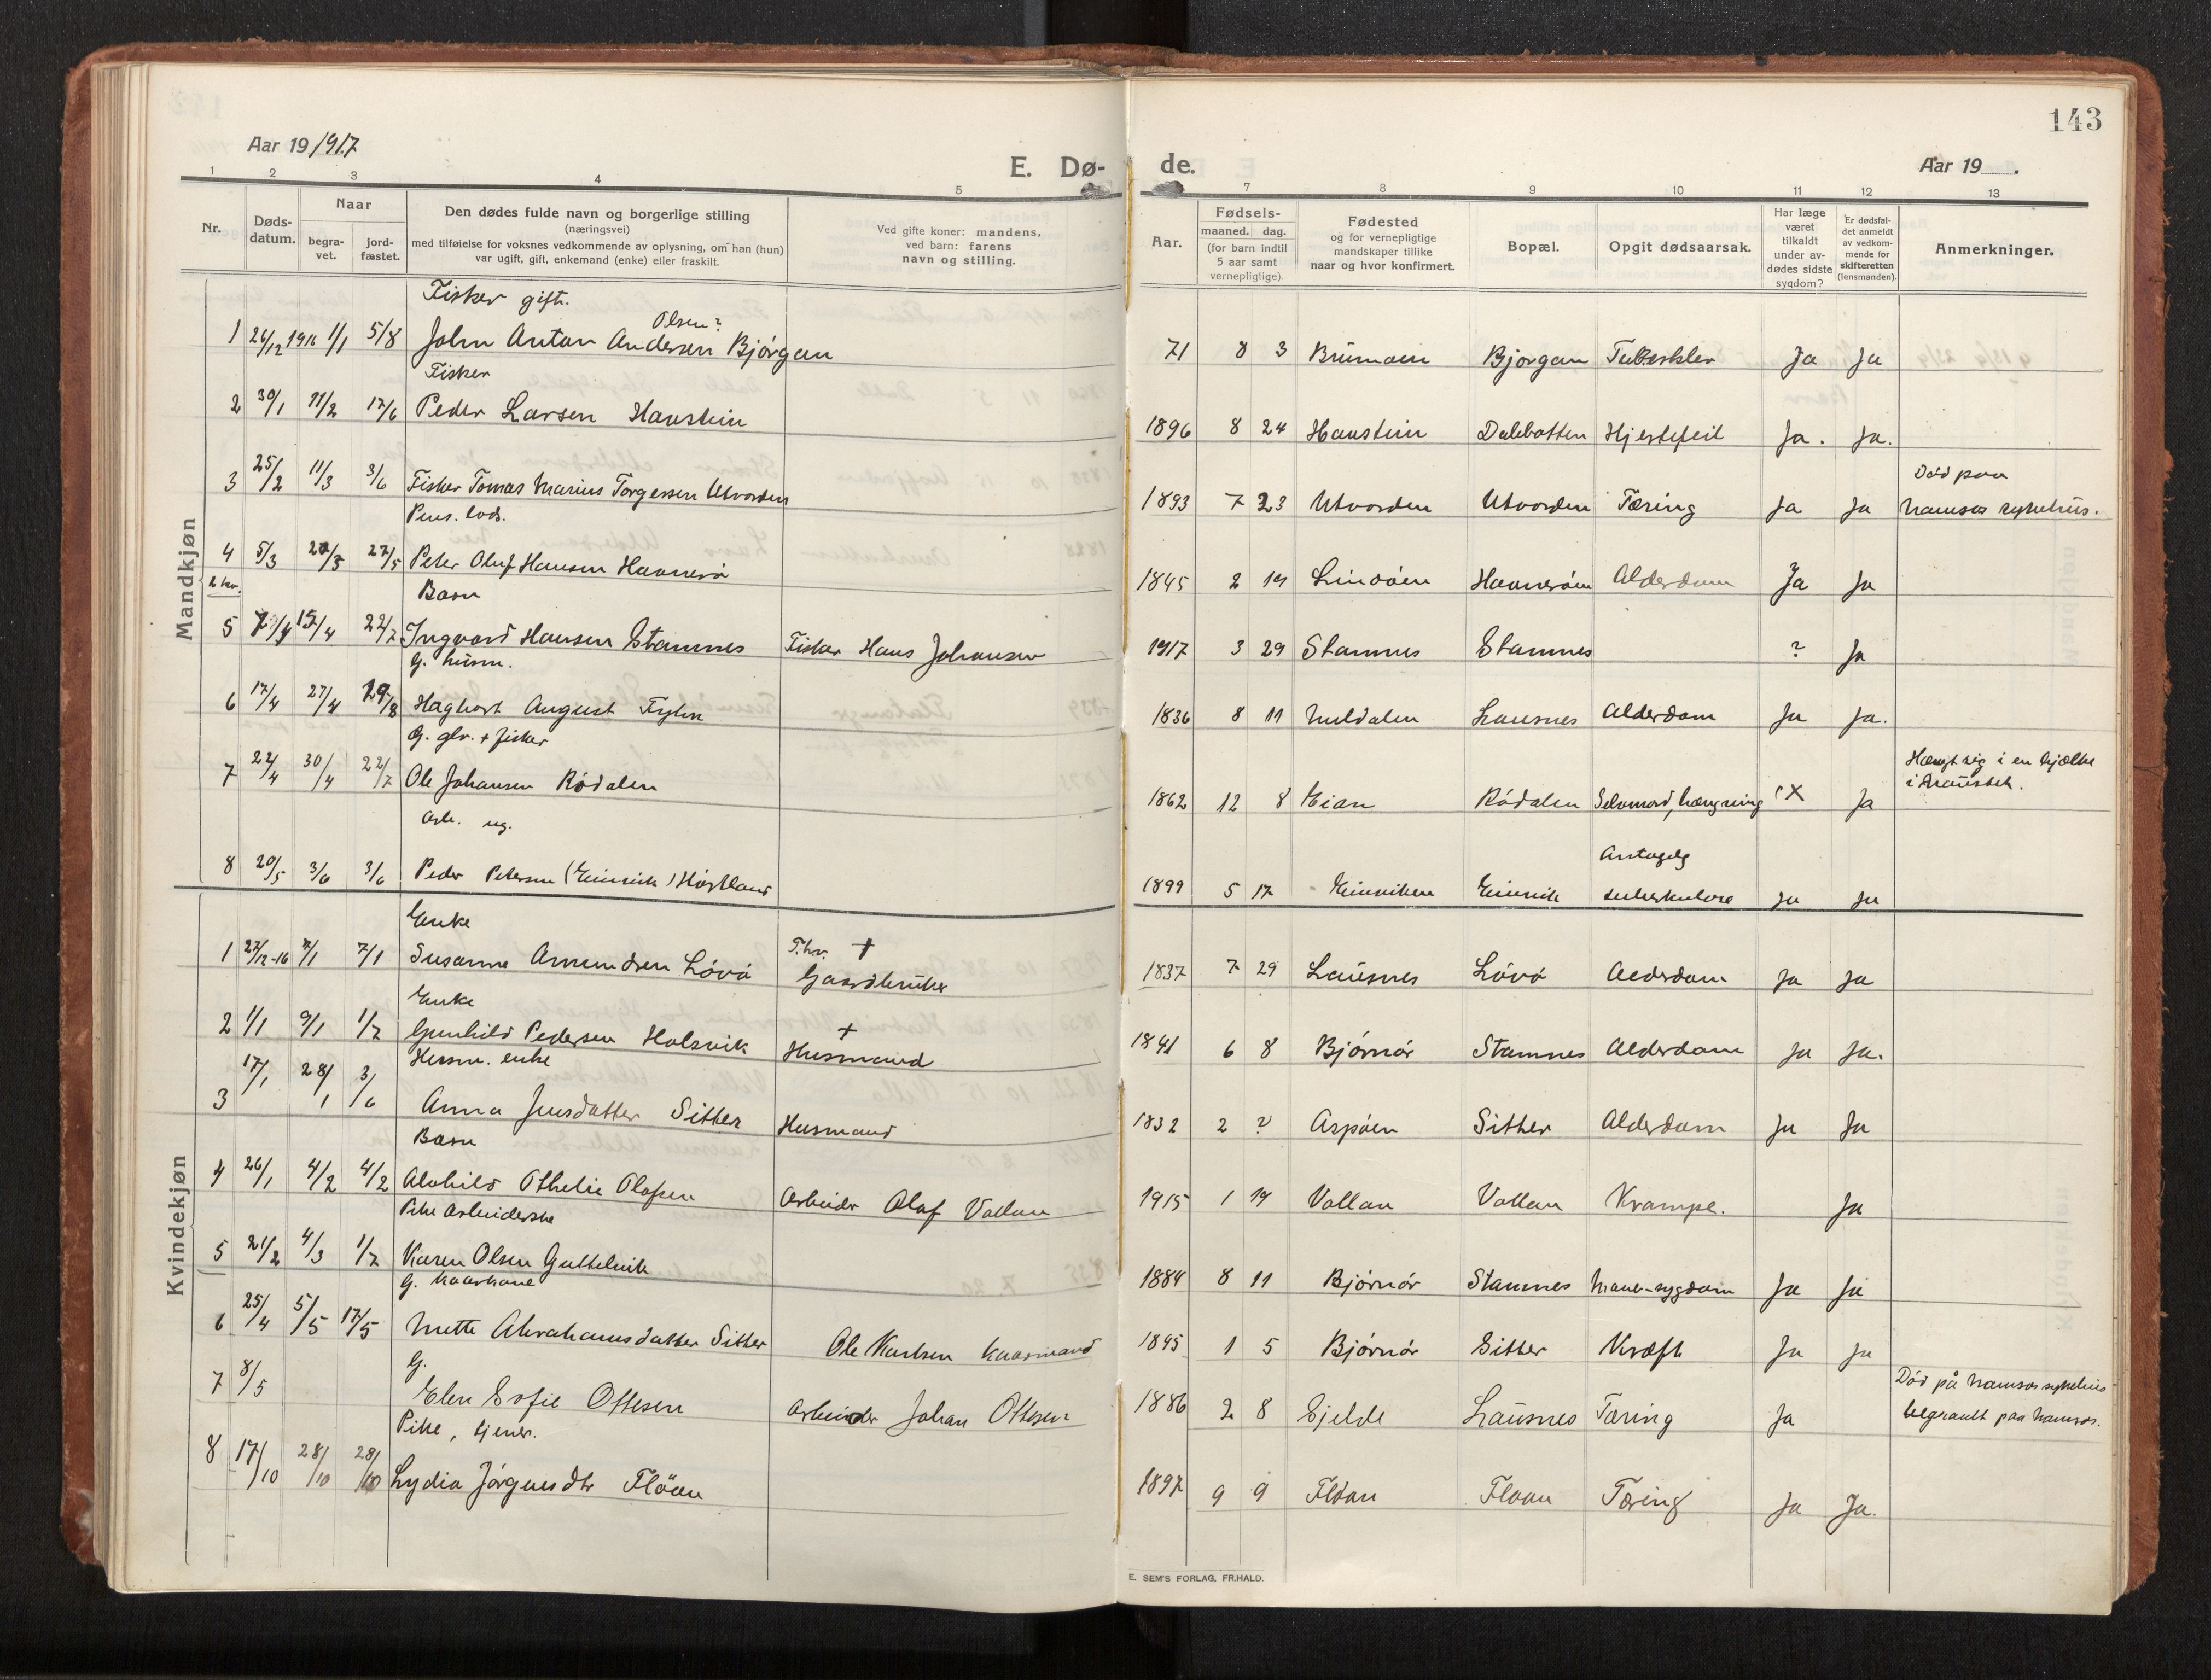 143
Aar 19 1917
E. Dø-
de.
Aar 19 .
1 2 3 4 5 7 8 9 10 11 12 13
Nr.
Døds-
datum.
Naar
begra-
vet.
jord-
fæstet.
Den dødes fulde navn og borgerlige stilling
(næringsvei)
med tilføielse for voksnes vedkommende av oplysning, om han (hun)
var ugift, gift, enkemand (enke) eller fraskilt.
Ved gifte koner: mandens,
ved barn: farens
navn og stilling.
Aar.
Fødsels-
maaned. dag.
(for barn indtil
5 aar samt
vernepligtige).
Fødested
og for vernepligtige
mandskaper tillike
naar og hvor konfirmert.
Bopæl.
Opgit dødsaarsak.
Har læge
været
tilkaldt
under av-
dødes sidste
sygdom?
Er dødsfal-
det anmeldt
av vedkom-
mende for
skifteretten
(lensmanden).
Anmerkninger.
Mandkjøn
Fisker gift.
Olsen?
1 26/12 1916 1/1 5/8 John Anton Andersen Bjørgan 71 8 3 Bjørgan Ja Ja
Fisker
2 30/1 11/2 17/6 Peder Larsen Haustein 1896 8 24 Haustein Dalebotten Hjertefeil Ja. Ja.
Død paa
3 25/2 11/3 3/6 Fisker Tomas Marius Torgersen Utvorden 1893 7 23 Utvorden Utvorden Tæring Ja Ja Namsos sykehus.
Pens. lods.
4 5/3 27/5 Peter Oluf Hansen Havnerø 1845 2 19 Lindøen Havnerøen Alderdom Ja Ja
Barn
5 15/4 22/7 Ingvard Hansen Stamnes Fisker Hans Johansen 1917 3 29 Stamnes Stamnes ? Ja
G. husm.
6 17/4 27/4 19/8 Haghart August Fyhn 1836 8 11 Muldalen Lausnes Alderdom Ja Ja.
G. gbr. + fisker
Hængt sig i en bjælke
i naustet.
7 22/4 30/4 22/7 Ole Johansen Rödalen 1862 12 8 Eian Rödalen Selvmord, hængning X Ja
Arb. ug.
Antagelig
8 20/5 3/6 3/6 Peder Petersen (Einvik) Høstland 1899 5 17 Einviken Einvik tuberkulose Ja Ja
Kvindekjøn
Enke
1 27/12-16 7/1 7/1 Susanne Amundsen Løvø F.hv. † Gaardbruker 1837 7 29 Lausnes Løvø Alderdom Ja Ja
Enke
2 1/1 9/1 1/7 Gunhild Pedersen Holsvik † Husmand 1841 6 8 Bjørnør Stamnes Alderdom Ja Ja.
Husm. enke
3 17/1 28/1 3/6 Anna Jensdatter Sitter Husmand 1832 2 ? Aspøen Sitter Alderdom Ja Ja
Barn
4 26/1 4/2 4/2 Alvhild Othelie Olafsen Arbeider Olaf Vallan 1915 1 14 Vallan Vallan Krampe. Ja
Pike Arbeiderske
5 21/2 4/3 1/7 Karen Olsen Guttelvik 1884 8 11 Bjørnør Stamnes Mave-sygdom Ja Ja
G. Kaarkone
6 25/4 5/5 17/5 Mette Abrahamsdatter Sitter Ole Karlsen Kaarmand 1845 1 5 Bjørnør Sitter Kræft Ja Ja
G.
Død på Namsos sykehus
7 8/5 Elen Sofie Ottesen Arbeider Johan Ottesen 1886 2 8 Gjelde Lausnes Tæring Ja begravet paa Namsos.
Pike, tjener.
8 17/10 28/10 28/10 Lydia Jørgensdtr Fløan 1897 9 9 Fløan Fløan Tæring Ja Ja.
E. SEM'S FORLAG, FR.HALD.